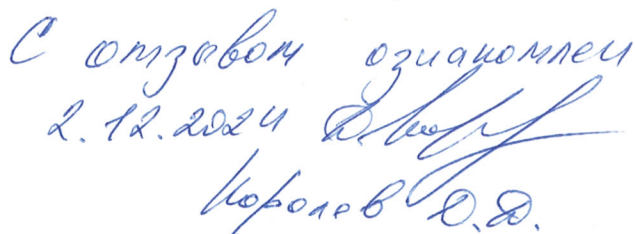 С отзывом ознакомлен
2.12.2024
Королев Д.Д.